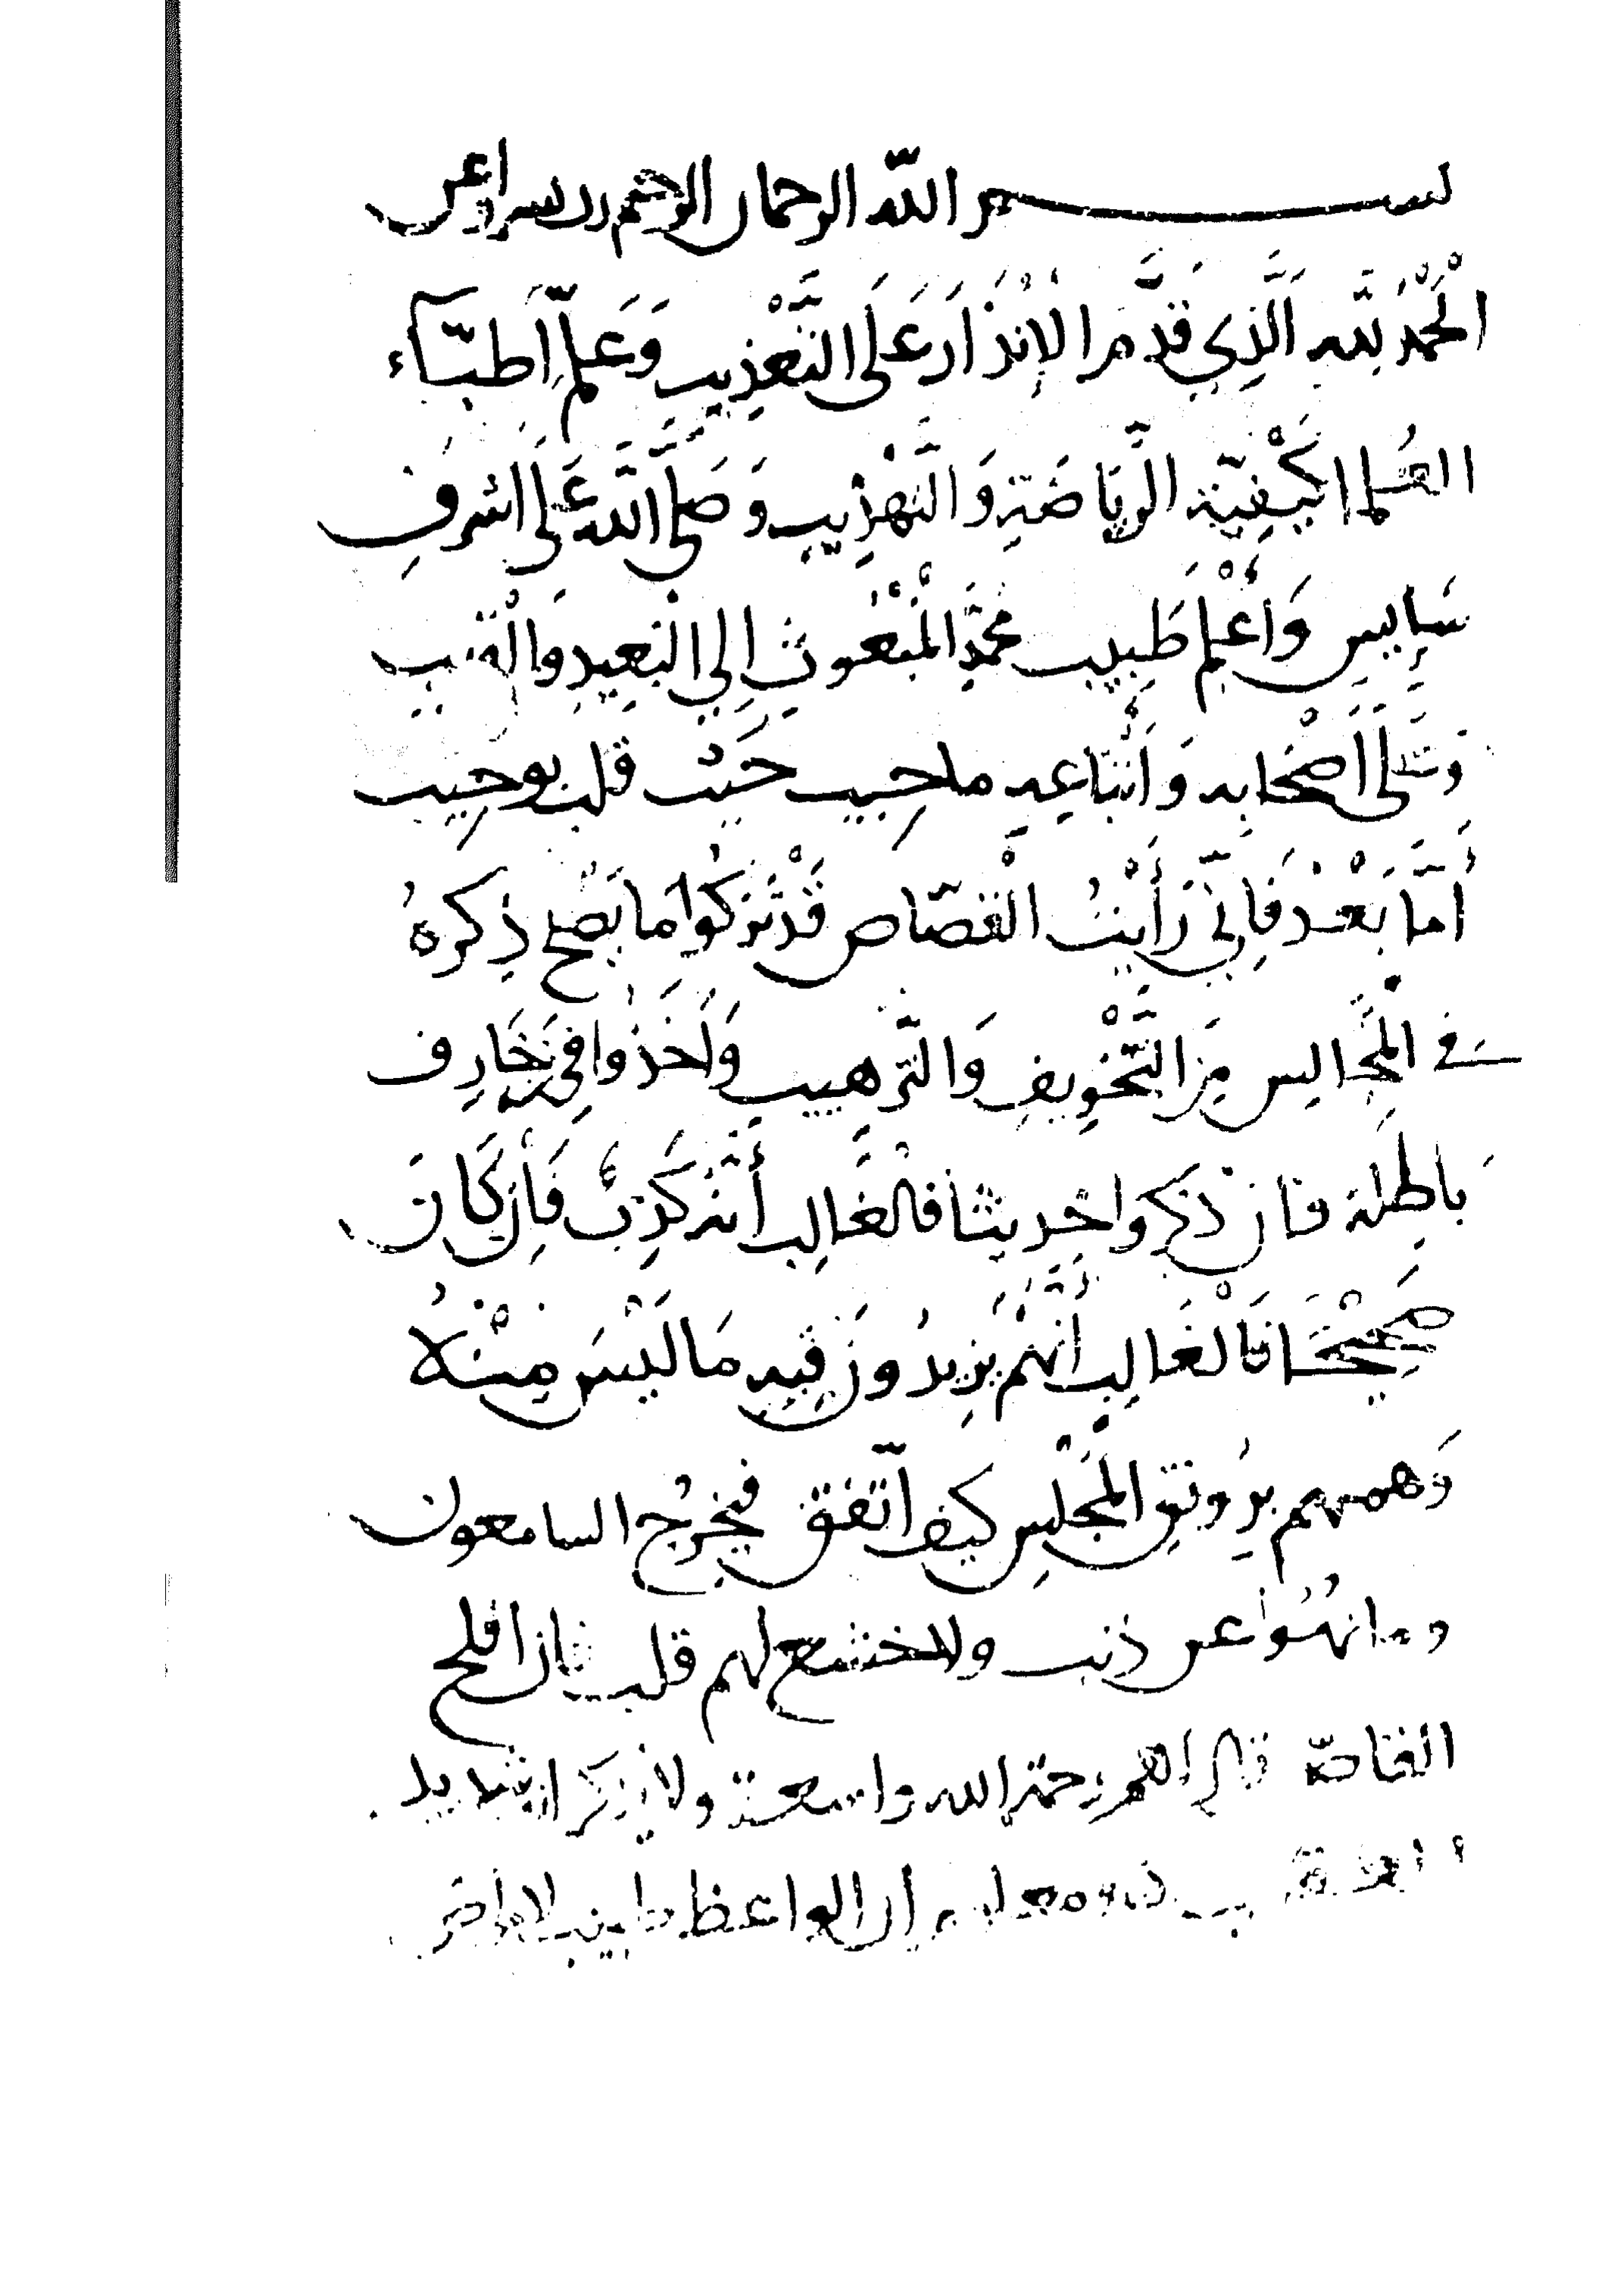 بسم الله الرحمان الرحيم رب يسر واعن
الْحَمْدُ لِلَّهِ الَّذِي قَدَّمَ الإِنْذَارَ عَلَى التَّعْذِيبِ وَعَلَّمَ أَطِبَّآءَ
العُلما كَيْفِيّة الرِّيَاضَةِ وَالتَّهْذِيبِ وَصَلَّى اللَّهُ عَلَى اشرَفِ
سَايِسٍ وَأَعْلم طَبِيبٍ مُحَمَّدٍ الْمَبْعُوثِ إِلَى الْبَعِيدِ وَالْقَرِيبِ
وَعَلَى أَصْحَابِهِ وَأَتْبَاعِهِ ما حِيبَ حَيْث قلب بوجيب
أَمَّا بَعْدُ فَإِنِّي رَأَيْتُ الْقصّاص قَدْ تَرَكُوا مَا يَصْلح ذِكرهُ
في الْمَجَالِس مِنَ التَّخْوِيفِ وَالتَّرهيبِ وَأَخَذُوا فِي زَخَارِف
بَاطِلة فان ذَكروا حديثا فالْغَالِب أَنَّهُ كَذِبٌ فَإِن كَانَ
صَحِيْحًا فَالْغَالِب أَنَّهُمْ يَزِيدُونَ فِيهِ مَا لَيْسَ مِنْهُ
وَهمهم بِرَونَقِ الْمَجْلِسِ كيف اتّفق فيخرُج السامعون
وما نهُوا عن ذنب ولا خشع لهم قلب فان افلح
القاصّ قال لهم رحمة الله واسعة ولا يذكر انه شديد
العقاب ومعلوم ان الواعظ طبيب لامراض